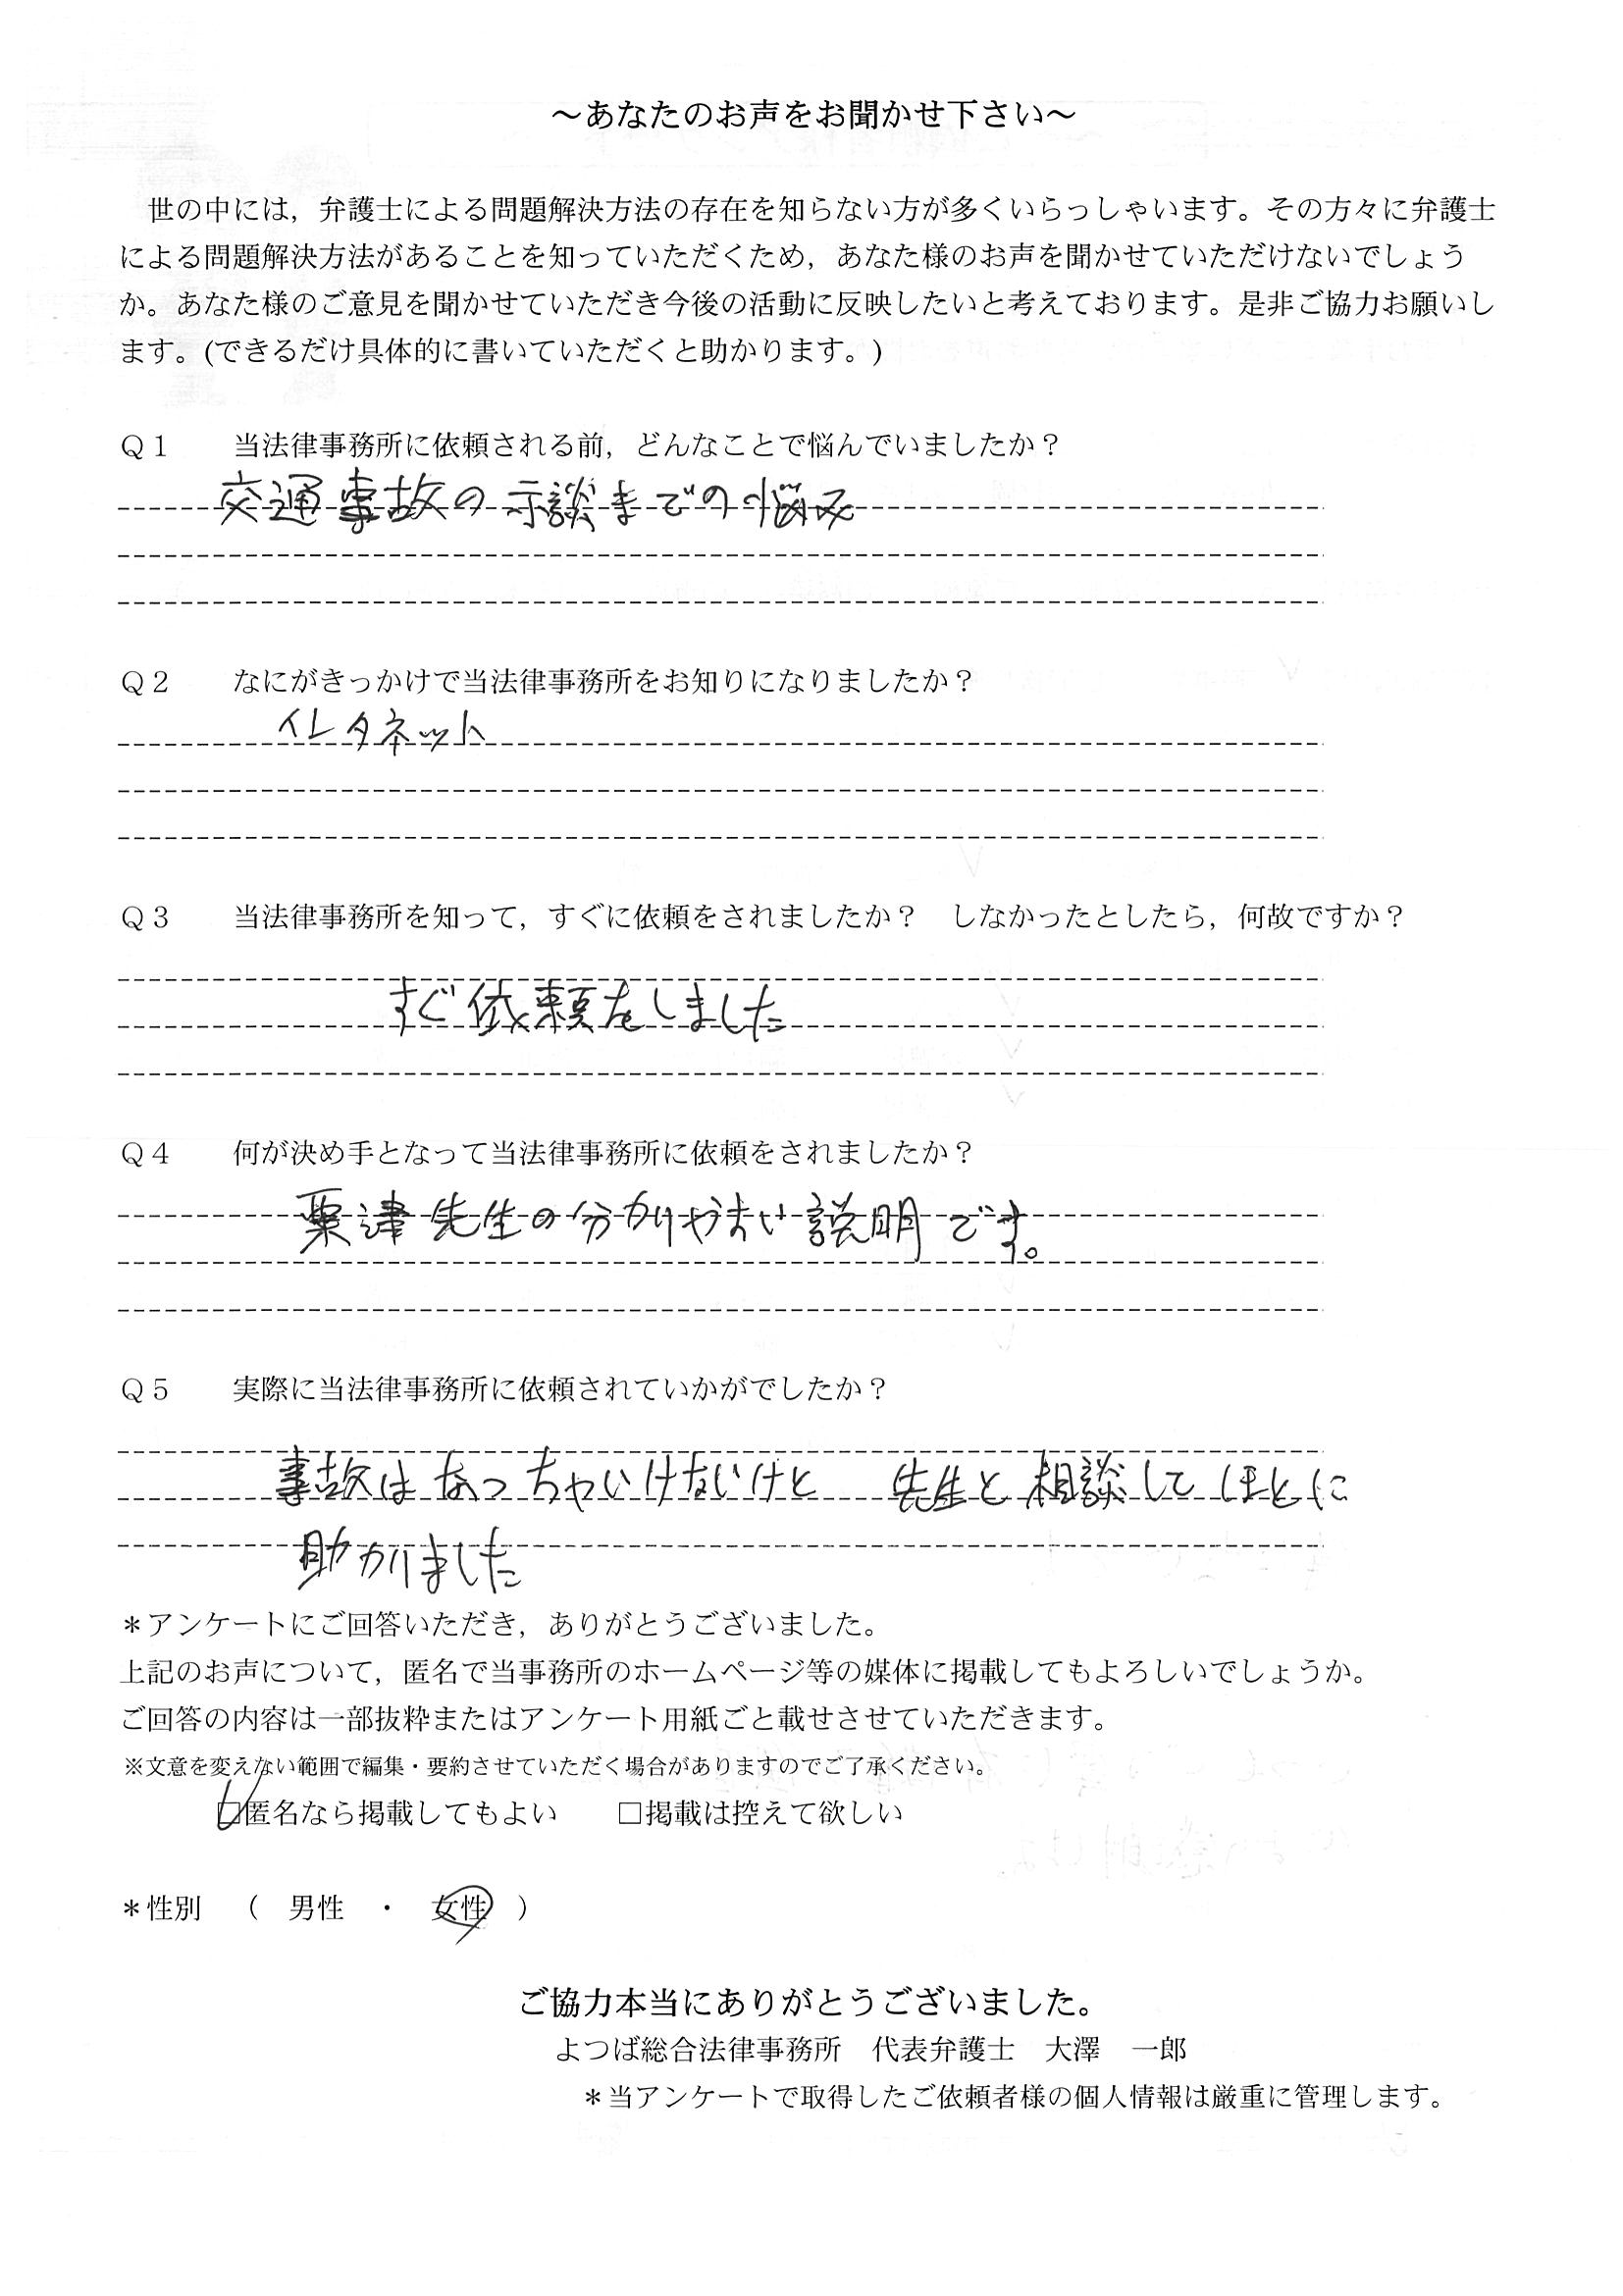 ～あなたのお声をお聞かせ下さい～
世の中には，弁護士による問題解決方法の存在を知らない方が多くいらっしゃいます。その方々に弁護士
による問題解決方法があることを知っていただくため，あなた様のお声を聞かせていただけないでしょう
か。あなた様のご意見を聞かせていただき今後の活動に反映したいと考えております。是非ご協力お願いし
ます。(できるだけ具体的に書いていただくと助かります。)
Ｑ１　　当法律事務所に依頼される前，どんなことで悩んでいましたか？
交通事故の示談までの悩み
Ｑ２　　なにがきっかけで当法律事務所をお知りになりましたか？
インタネット
Ｑ３　　当法律事務所を知って，すぐに依頼をされましたか？　しなかったとしたら，何故ですか？
すぐ依頼をしました
Ｑ４　　何が決め手となって当法律事務所に依頼をされましたか？
粟津先生の分かりやすい説明です。
Ｑ５　　実際に当法律事務所に依頼されていかがでしたか？
事故はあっちゃいけないけと　先生と相談してほとに
助かりました
＊アンケートにご回答いただき，ありがとうございました。
上記のお声について，匿名で当事務所のホームページ等の媒体に掲載してもよろしいでしょうか。
ご回答の内容は一部抜粋またはアンケート用紙ごと載せさせていただきます。
※文意を変えない範囲で編集・要約させていただく場合がありますのでご了承ください。
☑匿名なら掲載してもよい　　□掲載は控えて欲しい
＊性別　（　男性　・　女性　）
ご協力本当にありがとうございました。
よつば総合法律事務所　代表弁護士　大澤　一郎
＊当アンケートで取得したご依頼者様の個人情報は厳重に管理します。